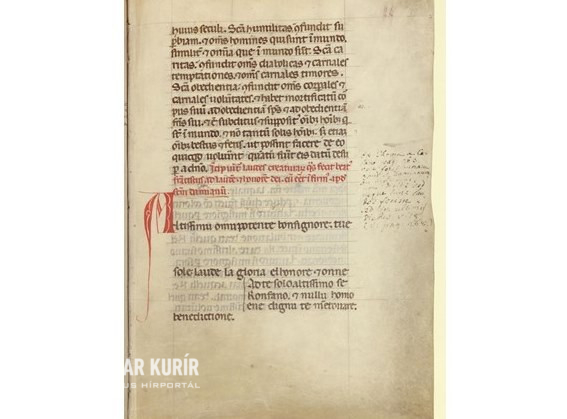 huius seculi. Sca humilitas ɔfundit su
pbiam. ⁊ oms homines qui sunt i mundo.
similit ⁊ omia que i mundo sunt. Sca ca
ritas. ɔfundit oms diabolicas ⁊ carnales
temptationes. ⁊ oms carnales timores.
Sca obedientia. ɔfundit oms corpales ⁊
carnales volutates. ⁊ habet mortificatu cor
pus suu ad obedientia sps ⁊ ad obedientia
fris sui. ⁊ e subditus ⁊ supposit oibus hoibus q
st i mundo. ⁊ no tantu solis hoibus. s; etia
oibus bestiis ⁊ feris. ut possint facere de eo
quicqd voluerint quatu fuit eis datu desu
p a dno. Incipiut laudes creaturar qs fecit beat
franciscus ad laude ⁊ honore dei. cu eet ifirm apd
scm damianu.
Altissimu omnipotente bonsignore. tue
sole laude la gloria elhonore ⁊ onne
Ad te solo altissimo se
Konfano. ⁊ nullu homo
ene dignu te mentovare.
benedictione.
AR KURÍR
US HÍRPORTÁL